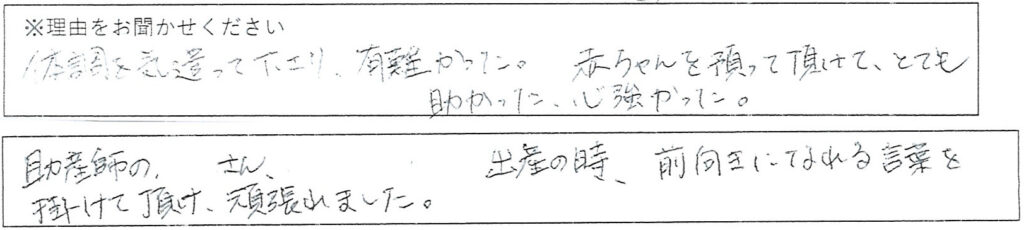 ※理由をお聞かせください
体調を気遣って下さり、有難かった。 赤ちゃんを預って頂けて、とても
助かった、心強かった。
助産師の、 さん、 出産の時、前向きになれる言葉を
掛けて頂け、頑張れました。